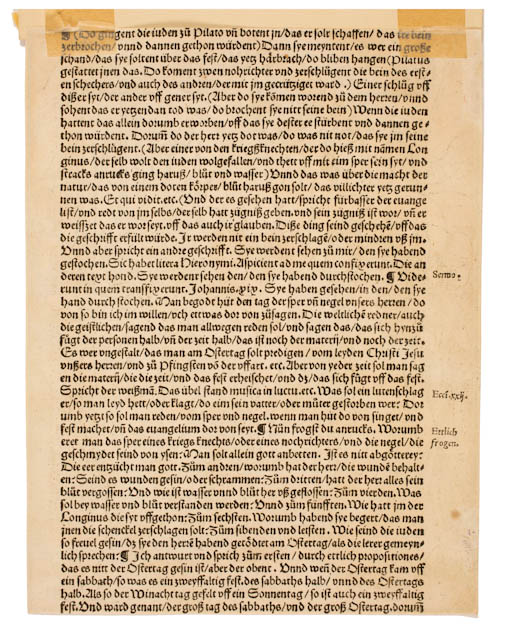 ¶ (Do gingent die iuden zů Pilato vñ botent jn/das er solt schaffen/ das ire bein
zerbrochen/ vnnd dannen gethon würdent) Dann sye meyntent/es wer ein große
schand/das sye soltent über das fest/das yetz härbrach/do bliben hangen (Pilatus
gestattet jnen das. Do koment zwen nohrichter vnd zerschlügent die bein des erst-
en schechers/vnd auch des andren/der mit jm gecrütziget ward.) Einer schlůg vff
dißer syt/der ander vff gener syt. (Aber do sye kömen worend zů dem herren/vnnd
sohent das er yetzendan tod was/do brochent sye nitt seine bein) Wenn die iuden
hattent das allein dorumb erworben/ vff das sye dester ee stürbent vnd dannen ge-
thon würdent. Dorum̃ do der herr yetz dot was/do was nit not/das sye jm seine
bein zerschlügent. (Aber einer von den kriegßknechten/der do hieß mit námen Lon
ginus/der selb wolt den iuden wolgefallen/vnd thett vff mit eim sper sein syt/vnd
stracks anrucks ging haruß/ blůt vnd wasser) Vnnd das was über die macht der
natur/das von einem doten kórper/ blůt haruß gon solt/ das villichter yetz gerun-
nen was. Et qui vidit.etc. (Vnd der es gesehen hatt/spricht fürbasser der euange
list/vnd redt von jm selbs/der selb hatt zügniß geben.vnd sein zügniß ist wor/ vñ er
weisszet das er wor seyt.vff das auch ir glauben. Diße ding seind geschehẽ/vff das
die geschrifft erfült würde. Ir werden nit ein bein zerschlagẽ/oder mindren vß jm.
Vnnd aber spricht ein andre geschrifft. Sye werdent sehen zů mir/den sye habend
gestochen. Sic habet litera Hieronymi. Aspicient ad me quem confixerunt. Die an
deren text hond. Sye werdent sehen den/den sye habend durchstochen. ¶ Vide-
runt in quem transfixerunt. Johannis.xix. Sye haben gesehen/in den/den sye
hand durch stochen. Man begodt hüt den tag der sper vñ negel vnsers herren/ do
von so bin ich im willen/vch ettwas dor von zůsagen. Die weltlichẽ redner/auch
die geistlichen/sagend das man allwegen reden sol/vnd sagen das/das sich hynzů
fůgt der personen halb/vñ der zeit halb/das ist noch der materi/vnd noch der zeit.
Es wer vngestalt/das man am Ostertag solt predigen/ vom leyden Christi Jesu
vnsers herren/vnd zů Pfingsten võ der vffart. etc. Aber von yeder zeit sol man sag
en die materiñ/die die zeit/vnd das fest erheischet/vnd dz/das sich fůgt vff das fest.
Spricht der weißmã. Das übel stand musica in luctu.etc. Was sol ein lutenschlag
er/so man leyd hett/oder klag/do eim sein vatter/oder můter gestorben wer: Dor
umb yetz so sol man reden/vom sper vnd negel.wenn man hüt do von singet/vnd
fest machet/vñ das euangelium dor von seyt. ¶ Nün frogst du anrucks. Worumb
eret man das sper eines kriegs knechts/oder eines nochrichters/vnd die negel/die
geschmydet seind von ysen: Man solt allein gott anbetten. Ist es nitt abgötterey:
Die eer entzücht man gott. Zům andren/worumb hat der herr/die wundẽ behalt-
en: Seind es wunden gesin/oder schrammen: Zům dritten/hatt der herr alles sein
blůt vergossen: Vnd wie ist wasser vnnd blůt her vß geflossen: Zům vierden. Was
sol bey wasser vnd blůt verstanden werden: Vnnd zům fünfften. Wie hatt jm der
Longinus die syt vffgethon: Zům sechsten. Worumb habend sye begert/das man
jnen die schenckel zerschlagen solt: Zům sibenden vnd letsten. Wie seind die iuden
so freuel gesin/dz sye den herrẽ habend getödtet am Ostertag/als die lerer gemeyn-
lich sprechen: ¶ Ich antwurt vnd sprich zům ersten/ durch ettlich propositiones/
das es nitt der Ostertag gesin ist/aber der obent. Vnnd weñ der Ostertag kam vff
ein sabbath/so was es ein zweyffaltig fest.des sabbaths halb/ vnnd des Ostertags
halb. Als so der Winacht tag gefelt vff ein Sonnentag/ so ist auch ein zweyffaltig
fest. Vnd ward genant/der groß tag des sabbaths/vnd der groß Ostertag.dorum̃
Sermo.
Eccl.xxij.
Ettlich
frogen.